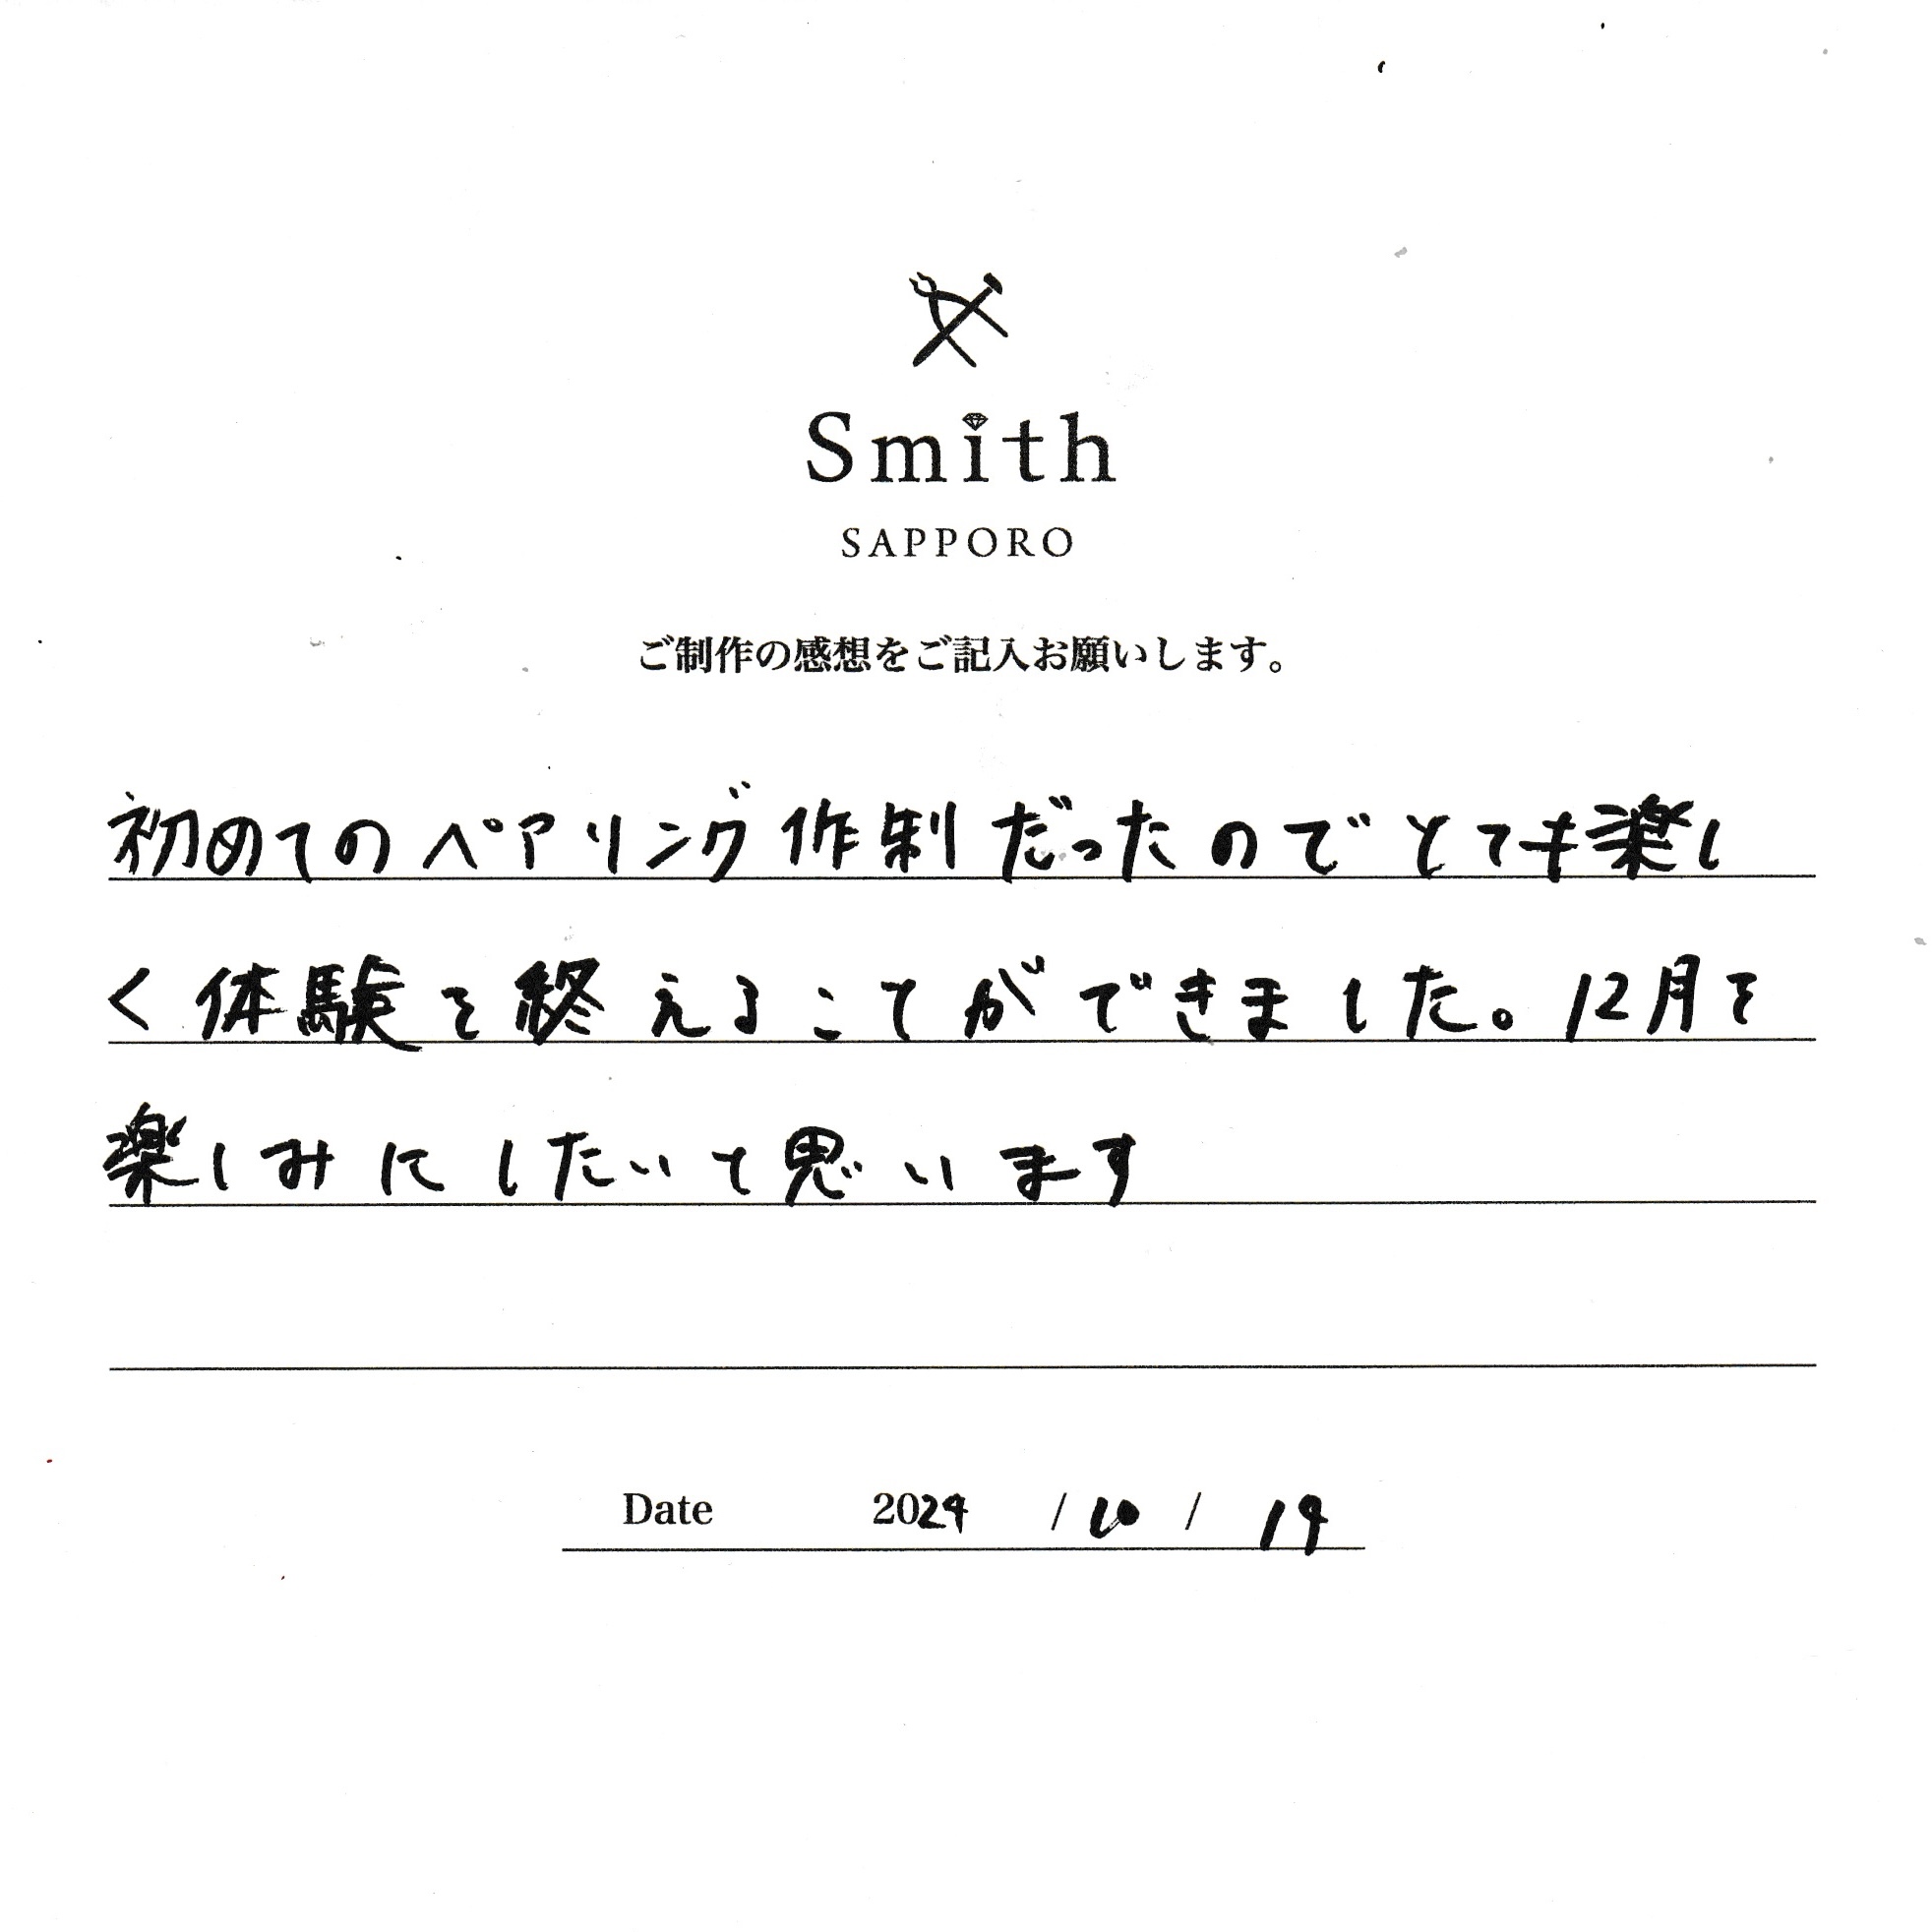 Smith
SAPPORO
ご制作の感想をご記入お願いします。
初めてのペアリング作制だったのでとても楽し
く体験を終えることができました。12月を
楽しみにしたいと思います
Date 2024 / 10 / 19